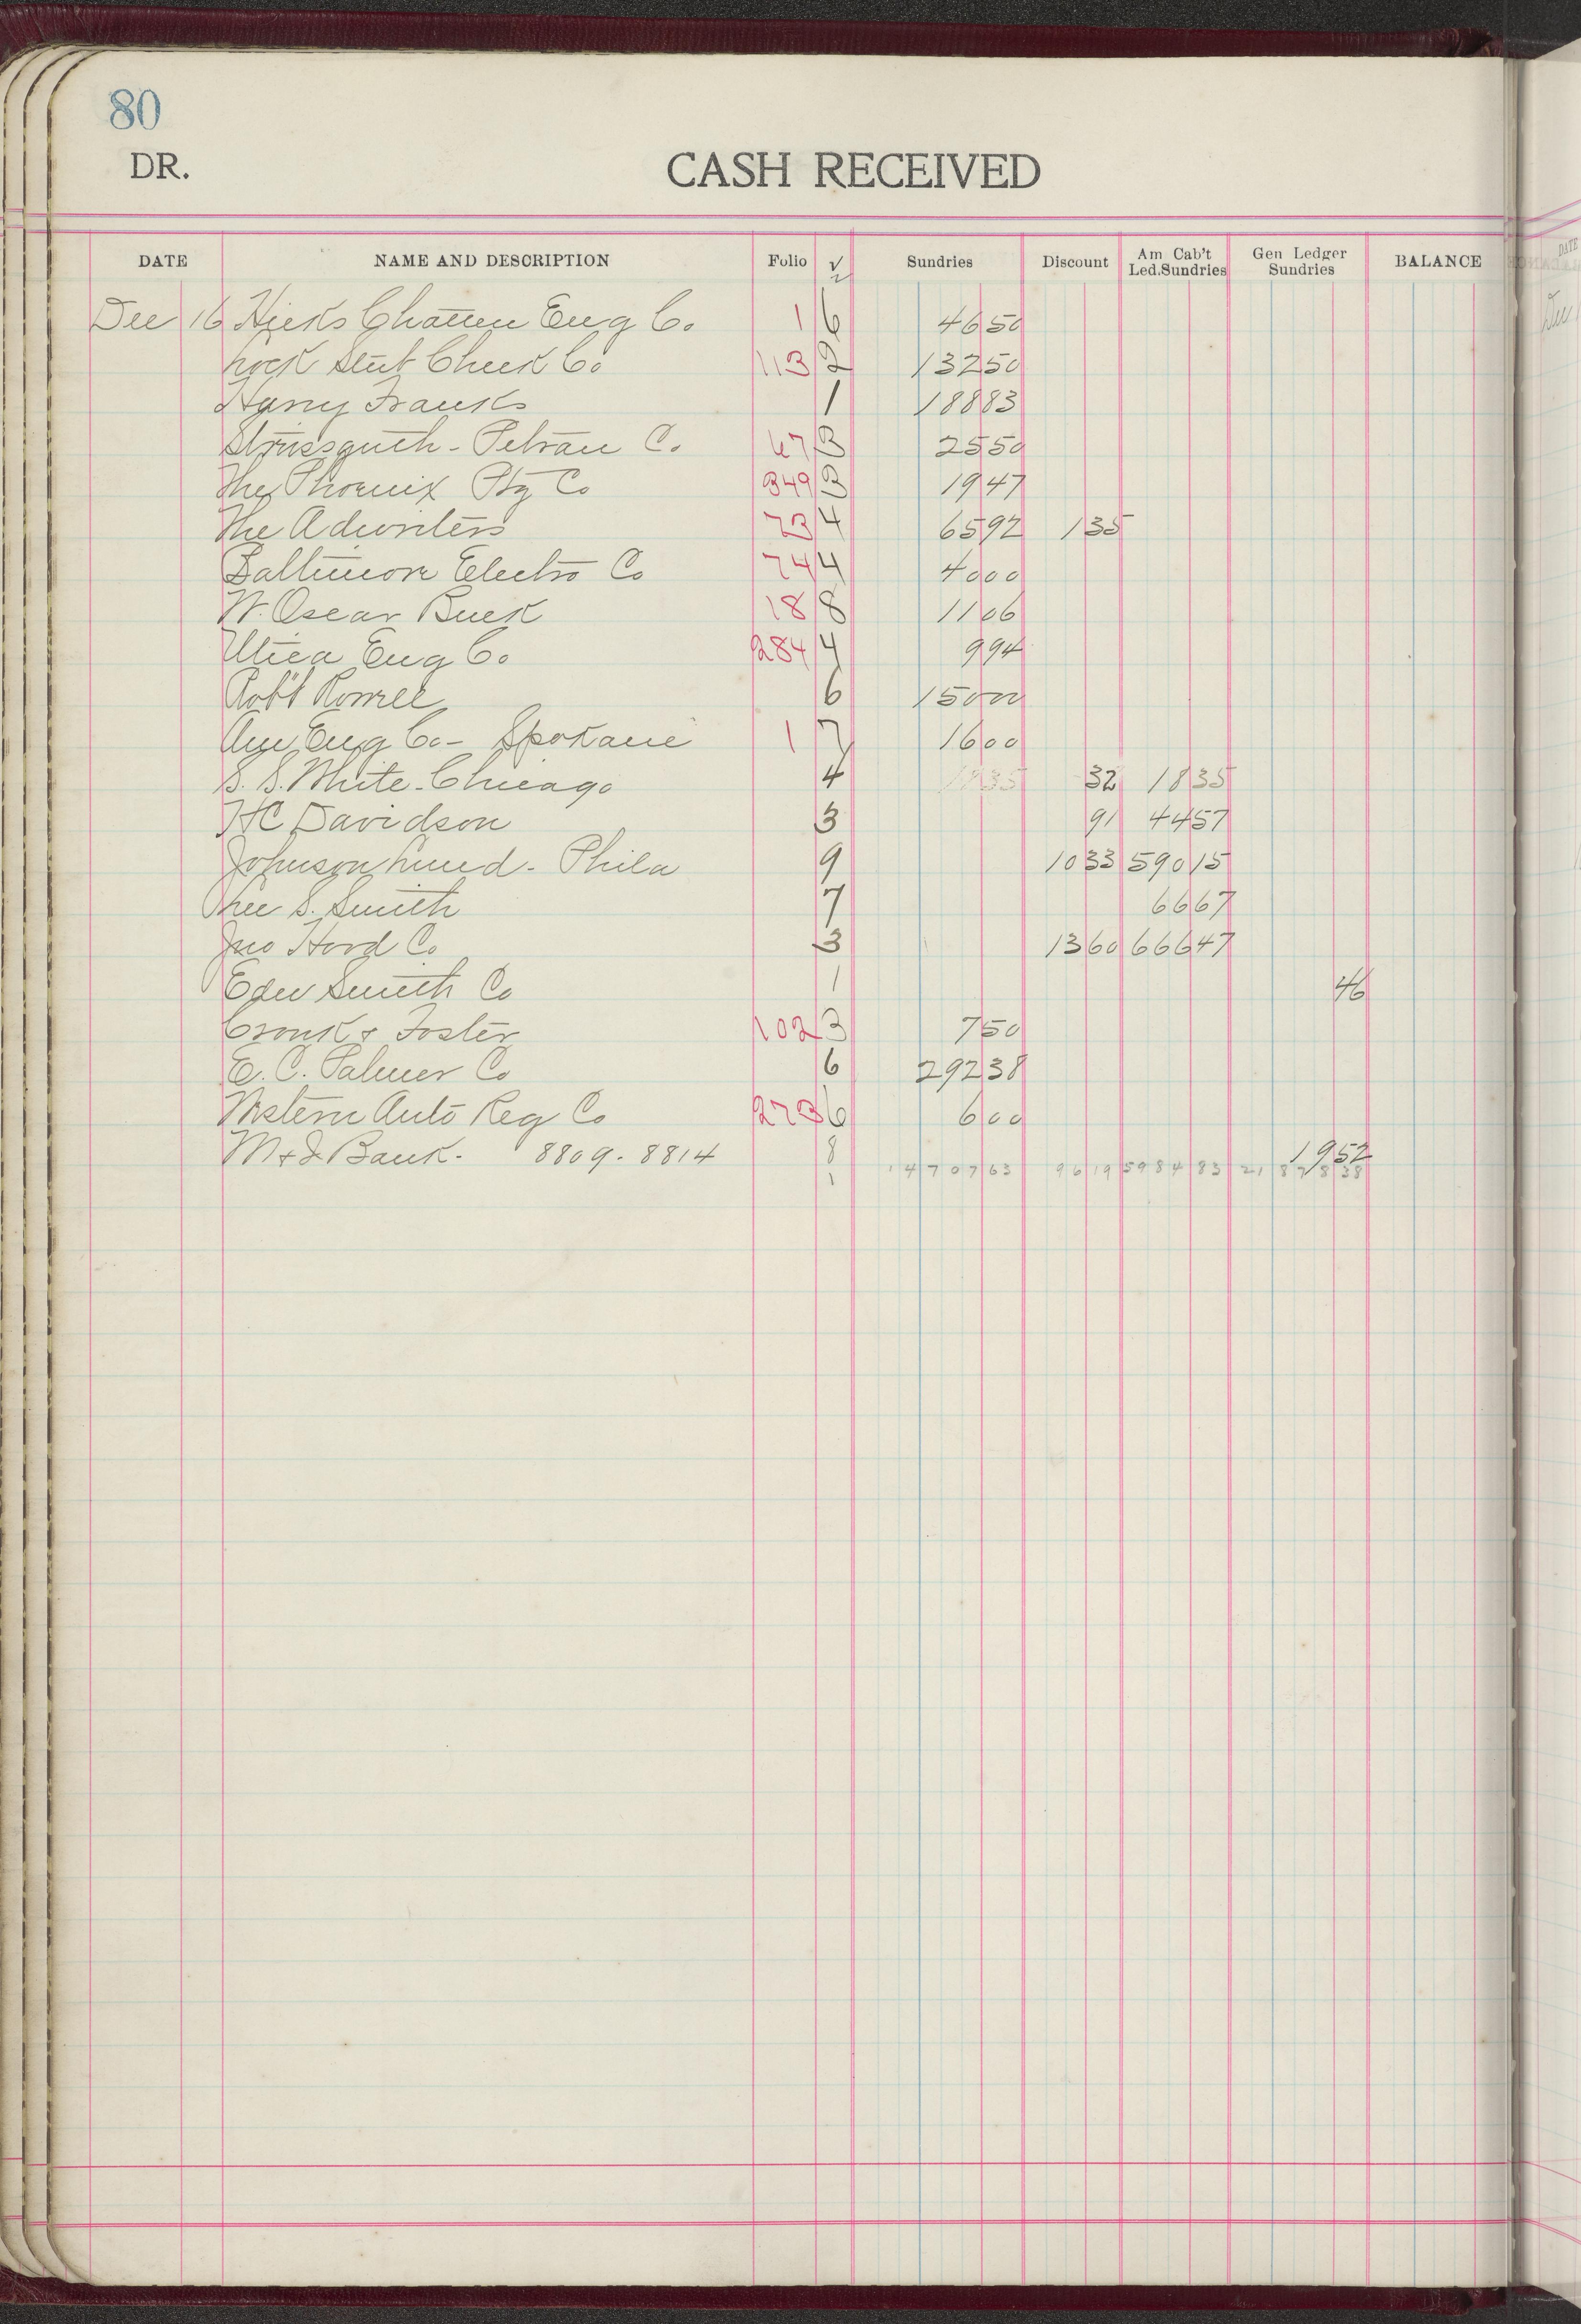 80
DR.
CASH RECEIVED
DATE NAME AND DESCRIPTION Folio √ Sundries Discount Am Cab't Led.Sundries Gen Ledger Sundries BALANCE
Dec 16 Hicks Chatten Eng Co. 1 6 46 50
Lock Stub Check Co 113 2 132 50
Harry Franks 1 188 83
Petran C. 67 3 25 50
The Phoenix Ptg Co 349 3 19 47
The Adwriters 73 4 65 92 1 35
Baltimore Electro Co 74 4 40 00
W. Oscar Buck 18 8 11 06
Utica Eng Co 284 4 9 94
Rob't 6 150 00
Am Eng Co - Spokane 1 7 16 00
S. S. White - Chicago 4 18 35 32 18 35
H C Davidson 3 91 44 57
Johnson Lund - Phila 9 10 33 590 15
Lee S. Smith 7 66 67
Jno Hood Co 3 13 60 666 47
Edw Smith Co 1 46
Cronk & Foster 102 3 7 50
E. C. Palmer Co 6 292 38
Western Auto Reg Co 273 6 6 00
M & J Bank. 8809 - 8814 8 19 52
1 14 707 63 96 19 5984 83 21 878 38